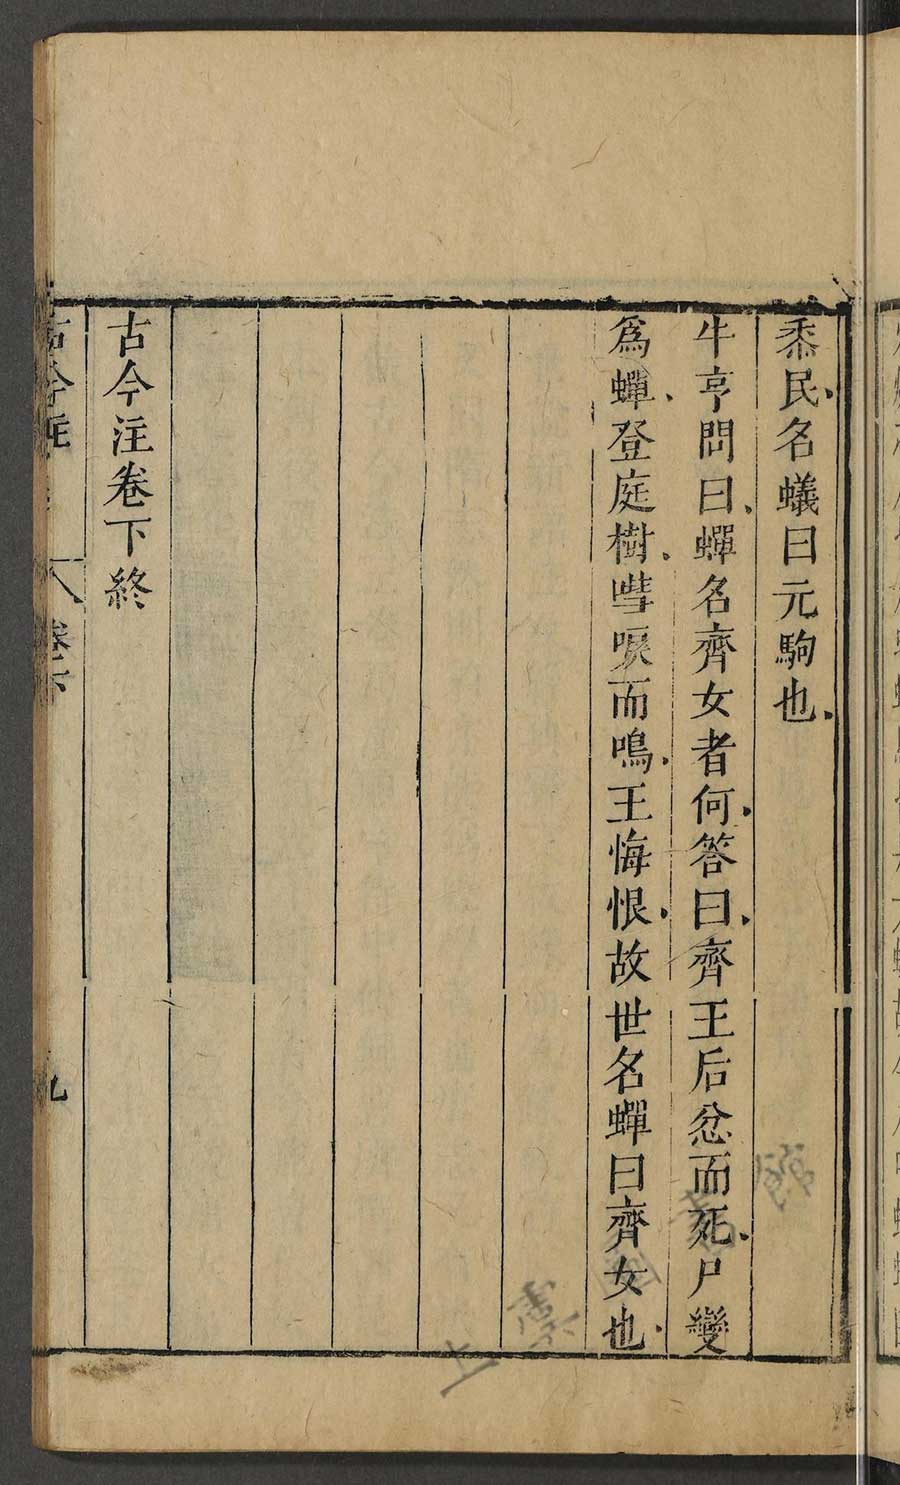 黍民名蟻曰元駒也
牛亨問曰蟬名齊女者何答曰齊王后忿而死尸變
爲蟬登庭樹嘒唳而鳴王悔恨故世名蟬曰齊女也
古今注卷下終
古今註
八
卷下
九